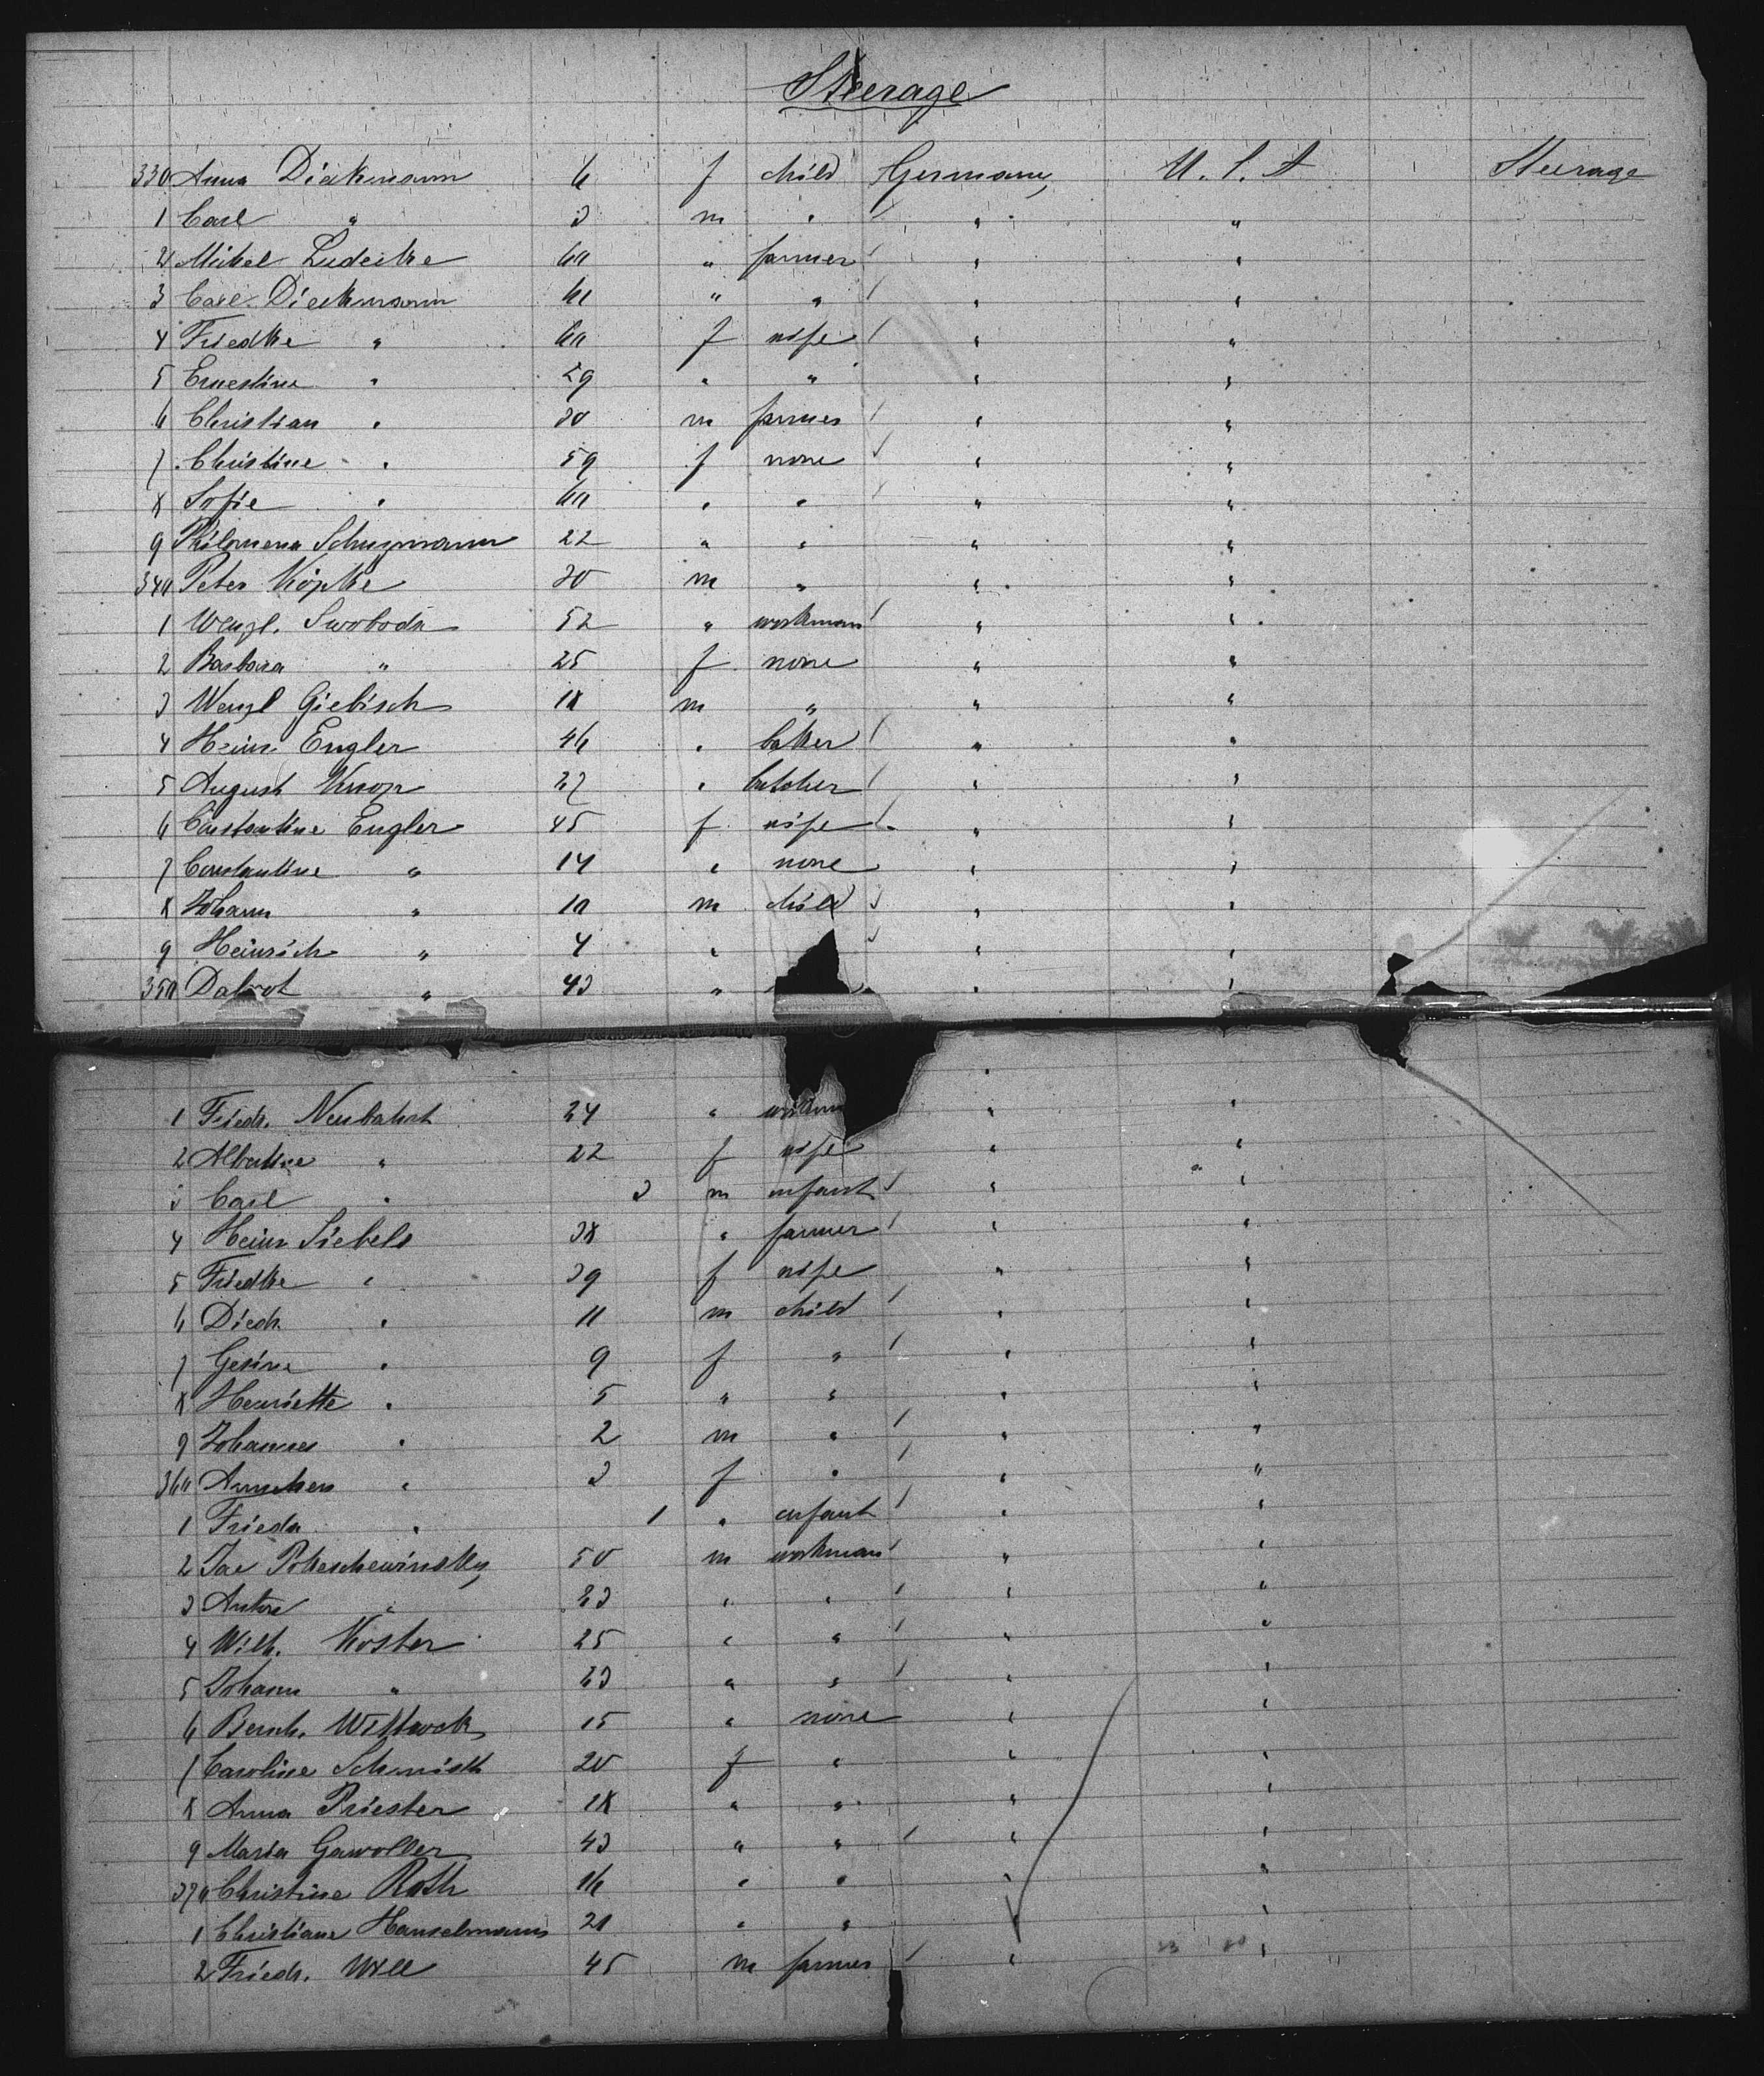 Steerage
330 Anna Diekmann 6 f child Germany U. S. A Steerage
1 Carl " 3 m " " "
2 Michel Ludeike 60 " farmer " "
3 Carl Diekmann 61 " " " "
4 Friedke " 60 f wife " "
5 Ernestine " 29 " " " "
6 Christian " 30 m farmer " "
7 Christine " 59 f none " "
8 Sofie " 60 " " " "
9 Philomena Schugmann 22 " " " "
340 Peter Köpke 20 m " " "
1 Wenzl. Swoboda 52 " workman " "
2 Barbara " 25 f none " "
3 Wenzl Giebisch 18 m " " "
4 Heinr. Engler 46 " baker " "
5 August Knop 27 " butcher " "
6 Engler 45 f wife " "
7 Constantine " 14 " none " "
8 Johann " 10 m child " "
9 Heinrich " 4 " " "
350 " 43 " " "
1 Friedr. Neubahrt 24 " " "
2 " 22 f wife " "
3 Carl " 3 m infant " "
4 Heinr Siebels 38 " farmer " "
5 Friedke " 39 f wife " "
6 Diedr. " 11 m child " "
7 Gesine " 9 f " " "
8 Henriette " 5 " " " "
9 Johannes " 2 m " " "
360 Annchen " 3 f " " "
1 Frieda " 1 " infant " "
2 50 m workman " "
3 Anton " 23 " " " "
4 Wilh. Koster 25 " " " "
5 Johann " 23 " " " "
6 Bernh. Wittwock 15 " none " "
7 Caroline Schmidt 20 f " " "
8 Anna Priester 18 " " " "
9 Maria Gawoller 43 " " " "
370 Christine Roth 16 " " " "
1 Christiane Hanselmann 21 " " " "
2 Friedr. Will 45 m farmer " "